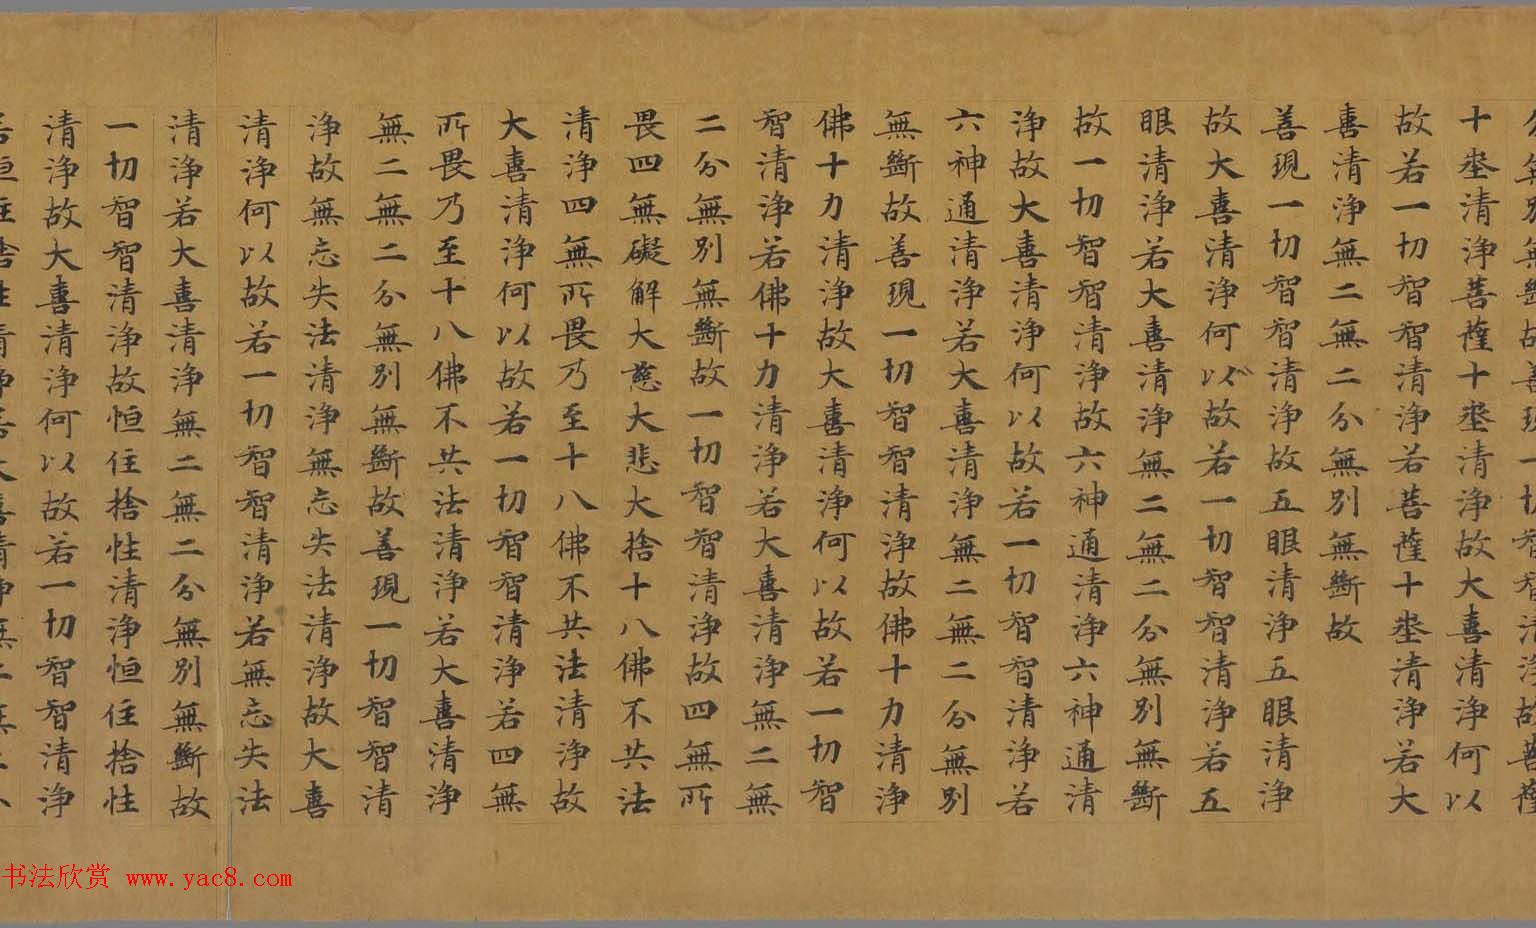 分無別無斷故善現一切智智清淨故菩薩
十埊清淨菩薩十埊清淨故大喜清淨何以
故若一切智智清淨若菩薩十埊清淨若大
喜清淨無二無二分無別無斷故
善現一切智智清淨故五眼清淨五眼清淨
故大喜清淨何以故若一切智智清淨若五
眼清淨若大喜清淨無二無二分無別無斷
故一切智智清淨故六神通清淨六神通清
淨故大喜清淨何以故若一切智智清淨若
六神通清淨若大喜清淨無二無二分無別
無斷故善現一切智智清淨故佛十力清淨
佛十力清淨故大喜清淨何以故若一切智
智清淨若佛十力清淨若大喜清淨無二無
二分無別無斷故一切智智清淨故四無所
畏四無礙解大慈大悲大捨十八佛不共法
清淨四無所畏乃至十八佛不共法清淨故
大喜清淨何以故若一切智智清淨若四無
所畏乃至十八佛不共法清淨若大喜清淨
無二無二分無別無斷故善現一切智智清
淨故無忘失法清淨無忘失法清淨故大喜
清淨何以故若一切智智清淨若無忘失法
清淨若大喜清淨無二無二分無別無斷故
一切智智清淨故恒住捨性清淨恒住捨性
清淨故大喜清淨何以故若一切智智清淨
若恒住捨性清淨若大喜清淨無二無二分
书法欣赏 www.yac8.com